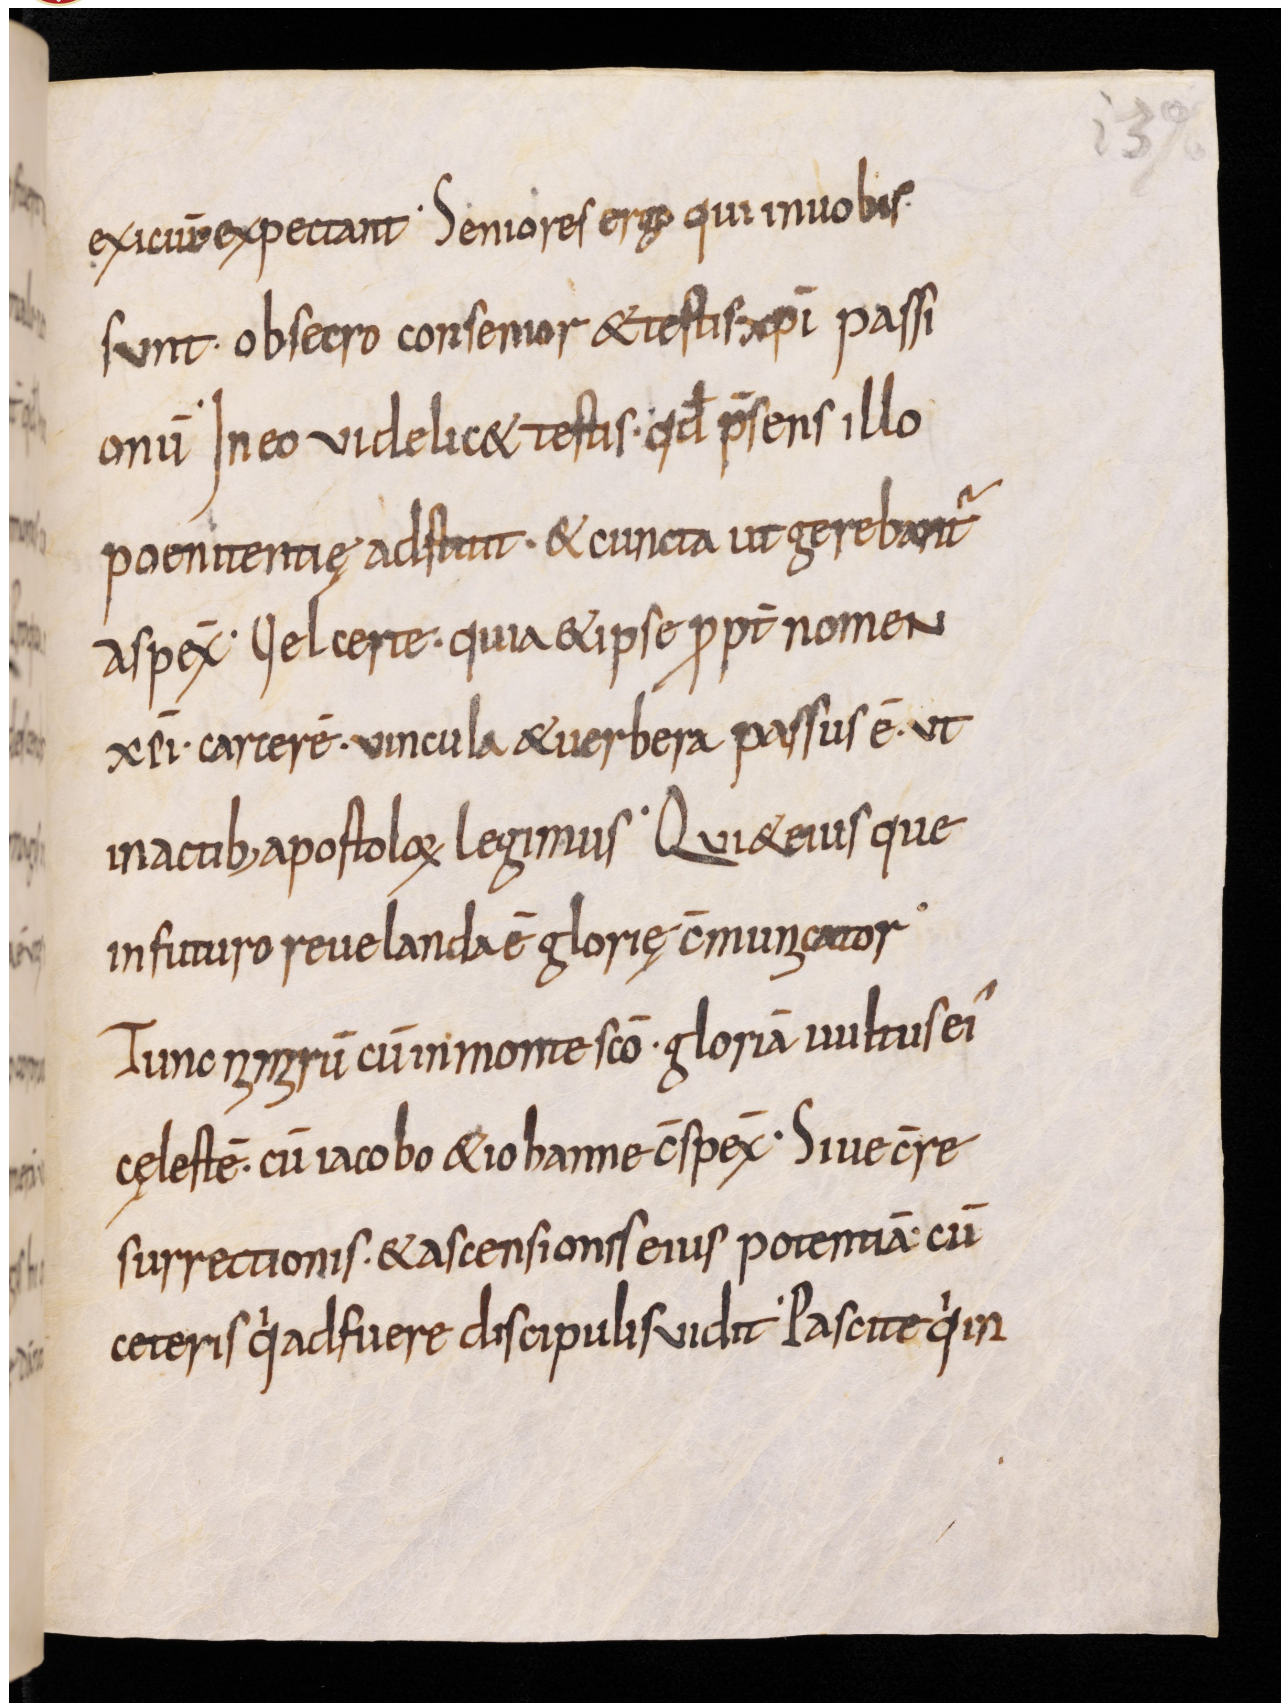 exicuū expectant· Seniores ergo qui inuobis·
sunt· obsecro consenior & testis xp̄i passi
onū· In eo videlic& testis· qđ p̄sens illo
poenitentię adstitit· & cuncta ut gerebant᷑
aspex̄· Vel certe· quia & ipse ꝓpt̄ nomen
xp̄i· carcerē· vincula & uerbera passus ē· ut
in actib; apostoloꝝ legimus· Qui & eius que
in futuro reuelanda ē glorię c̄municator·
Tunc nimirū cū in monte scō· gloriā uultus ei᾽
cęlestē· cū iacobo & iohanne c̄spex̄· Siue c̄ re
surrectionis· & ascensionis eius potentiā· cū
ceteris qͥ adfuere discipulis vidit· Pascite qͥ in